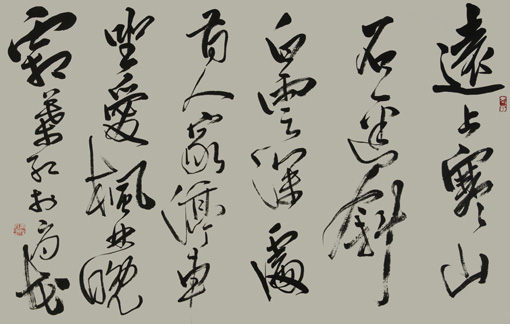 遠上寒山
石逕斜
白雲深處
有人家停車
坐愛楓林晚
霜葉紅於二月花